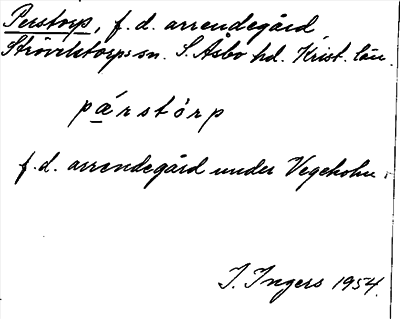 Perstorp, f.d. arrendegård
Strövelstorps sn. S. Åsbo hd. Krist. län.
pa̲´rstòrp
f.d. arrendegård under Vegeholm.
I. Ingers 1954.